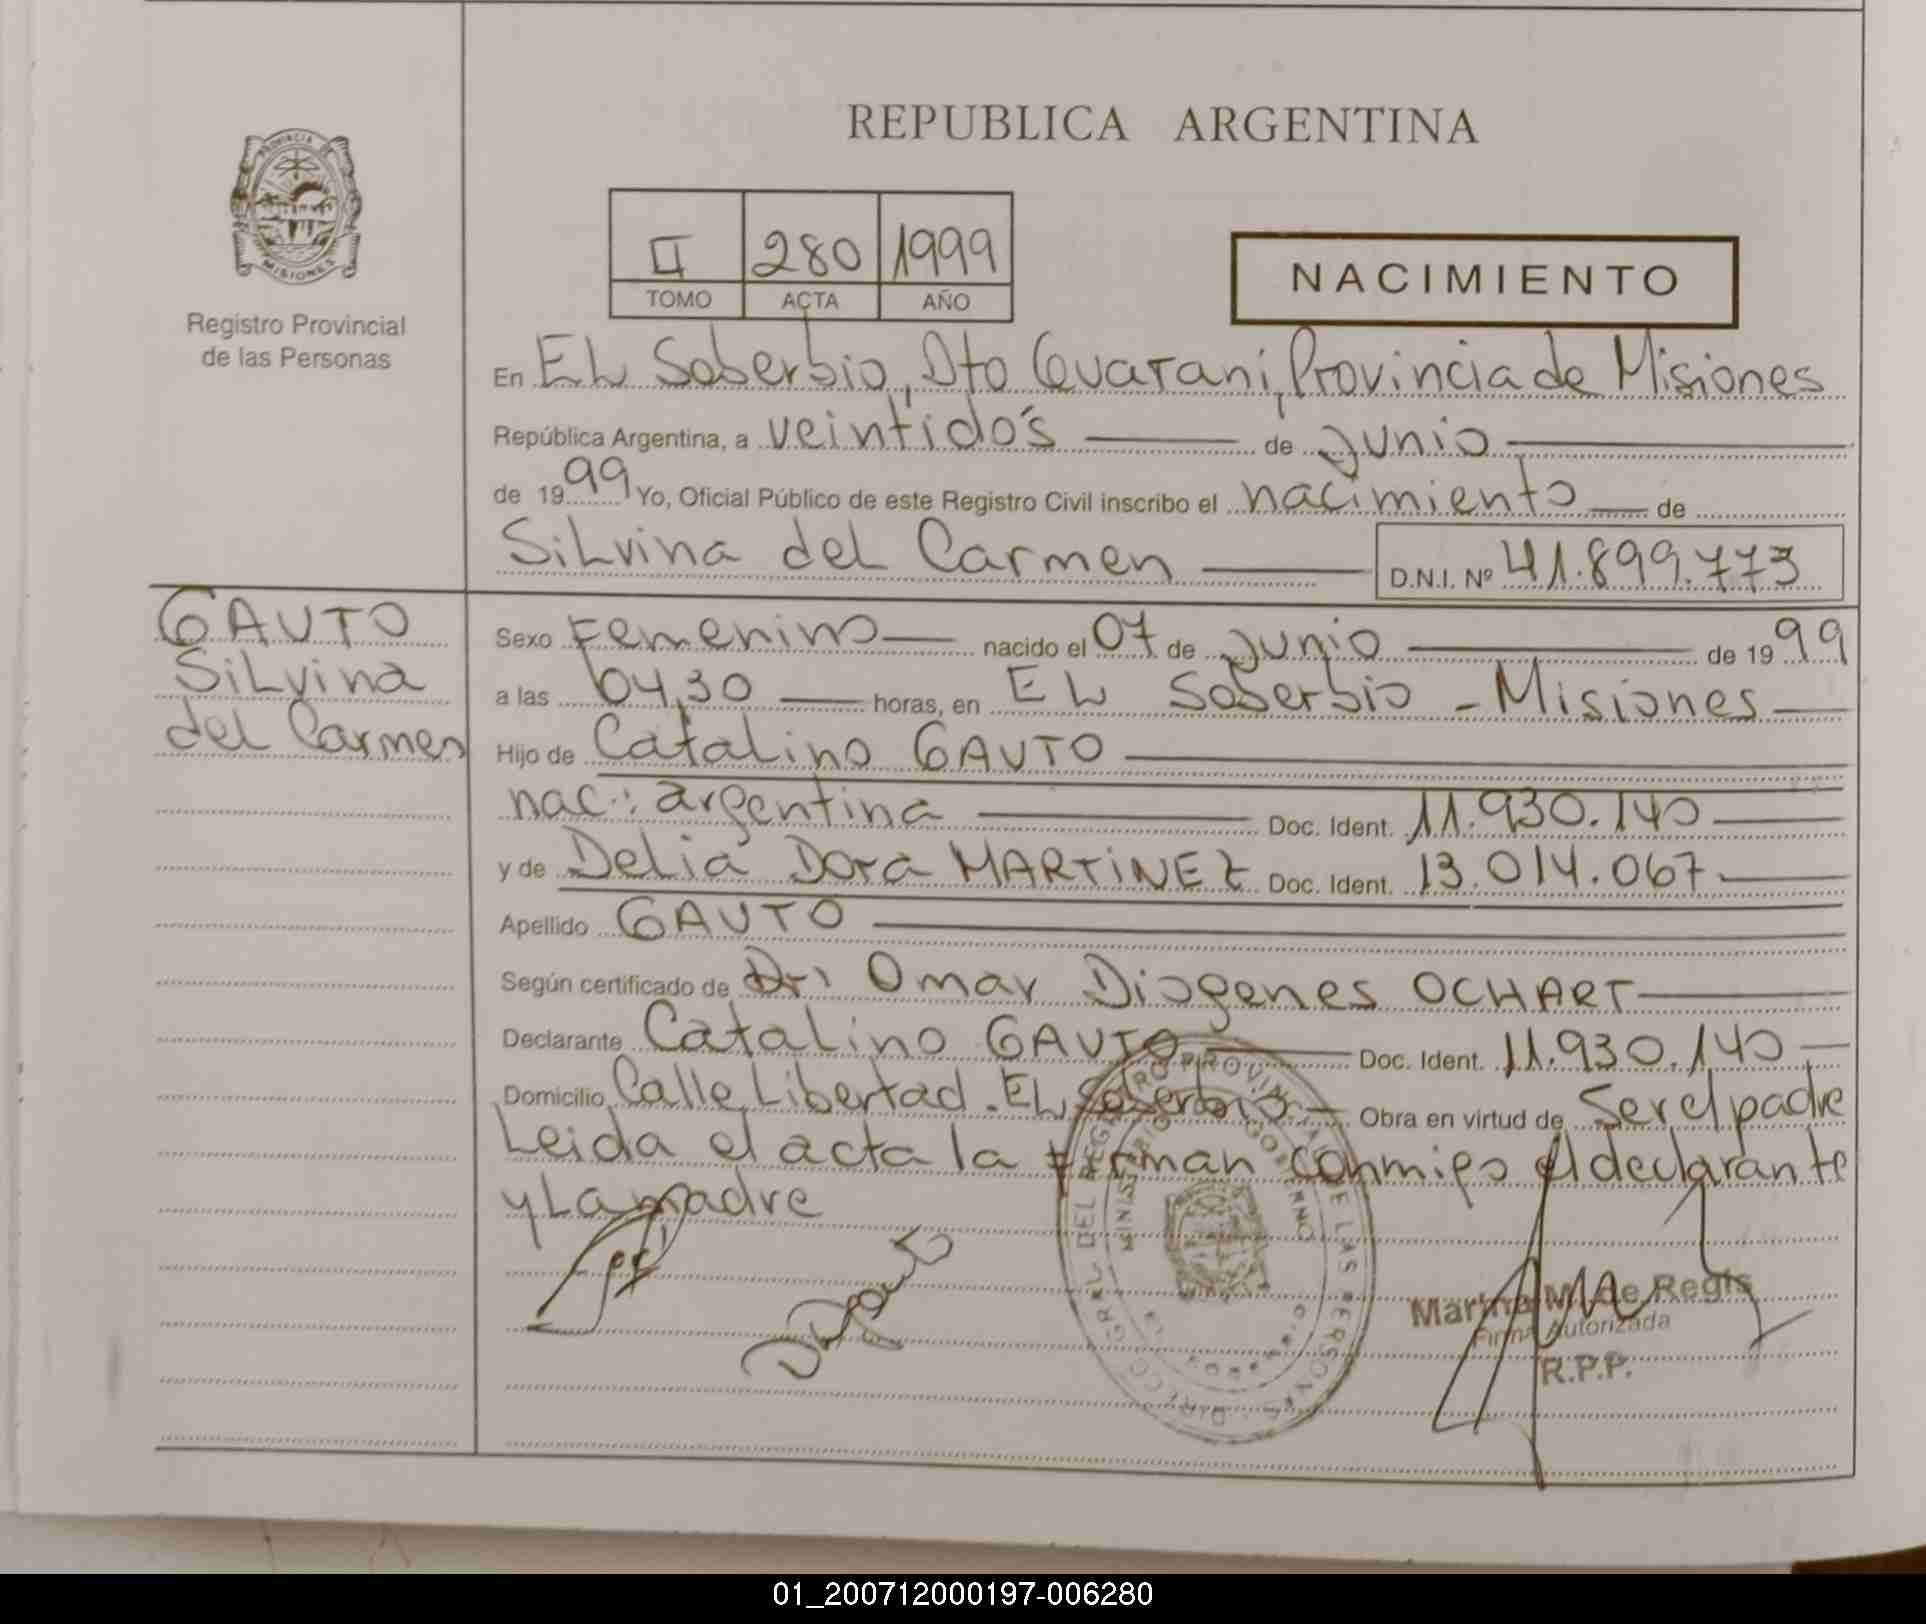 REPUBLICA ARGENTINA
PROVINCIA DE
MISIONES
Registro Provincial
de las Personas
II 280 1999
TOMO ACTA AÑO
NACIMIENTO
En EL Soberbio, Dto Guaraní, Provincia de Misiones
República Argentina, a veintidós de junio
de 1999 Yo, Oficial Público de este Registro Civil inscribo el nacimiento de
Silvina del Carmen D.N.I. Nº 41.899.773
GAUTO
Silvina
del Carmen
Sexo Femenino nacido el 07 de junio de 1999
a las 04,30 horas, en EL Soberbio - Misiones
Hijo de Catalino GAUTO
nac.: argentina Doc. Ident. 11.930.140
y de Delia Dora MARTINEZ Doc. Ident. 13.014.067
Apellido GAUTO
Según certificado de Dr: Omar Diogenes OCHART
Declarante Catalino GAUTO Doc. Ident. 11.930.140
Domicilio Calle Libertad - EL Soberbio - Obra en virtud de Ser el padre
Leida el acta la firman conmigo el declarante
y La madre
DIRECC. GRAL. DEL REGISTRO PROVINCIAL DE LAS PERSONAS
MINISTERIO GOBIERNO
Marina M. de Regis
Firma Autorizada
R.P.P.
01_200712000197-006280